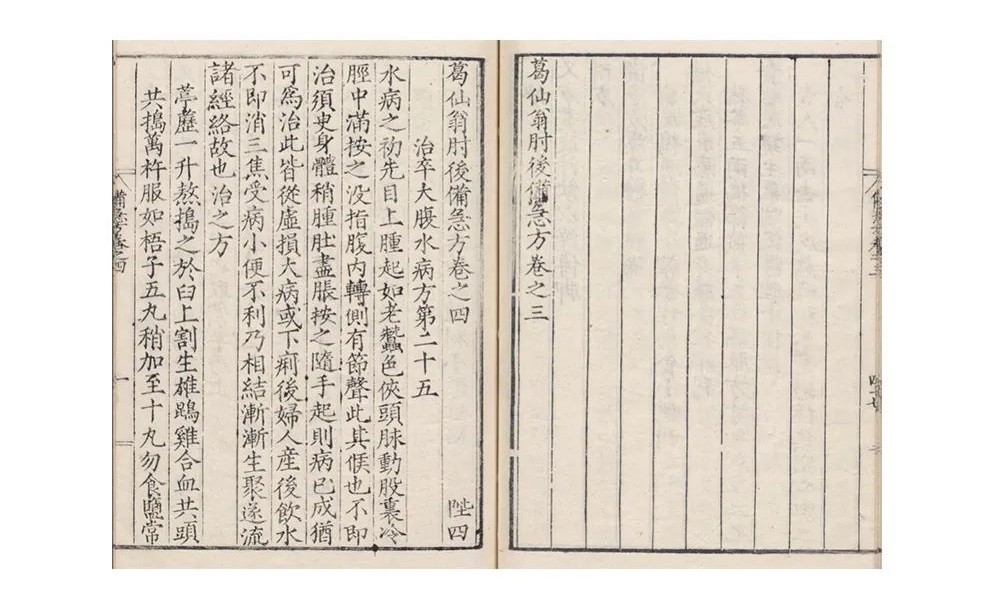 葛仙翁肘後備急方卷之三
葛仙翁肘後備急方卷之四 陛四
治卒大腹水病方第二十五
水病之初先目上腫起如老蠶色俠頭脉動股裏冷
脛中滿按之没指腹内轉側有節聲此其候也不即
治須臾身體稍腫肚盡脹按之隨手起則病已成猶
可爲治此皆從虚損大病或下痢後婦人産後飲水
不即消三焦受病小便不利乃相結漸漸生聚遂流
諸經絡故也治之方
葶藶一升熬搗之於臼上割生雄鵾雞合血共頭
共搗萬杵服如梧子五丸稍加至十丸勿食鹽常